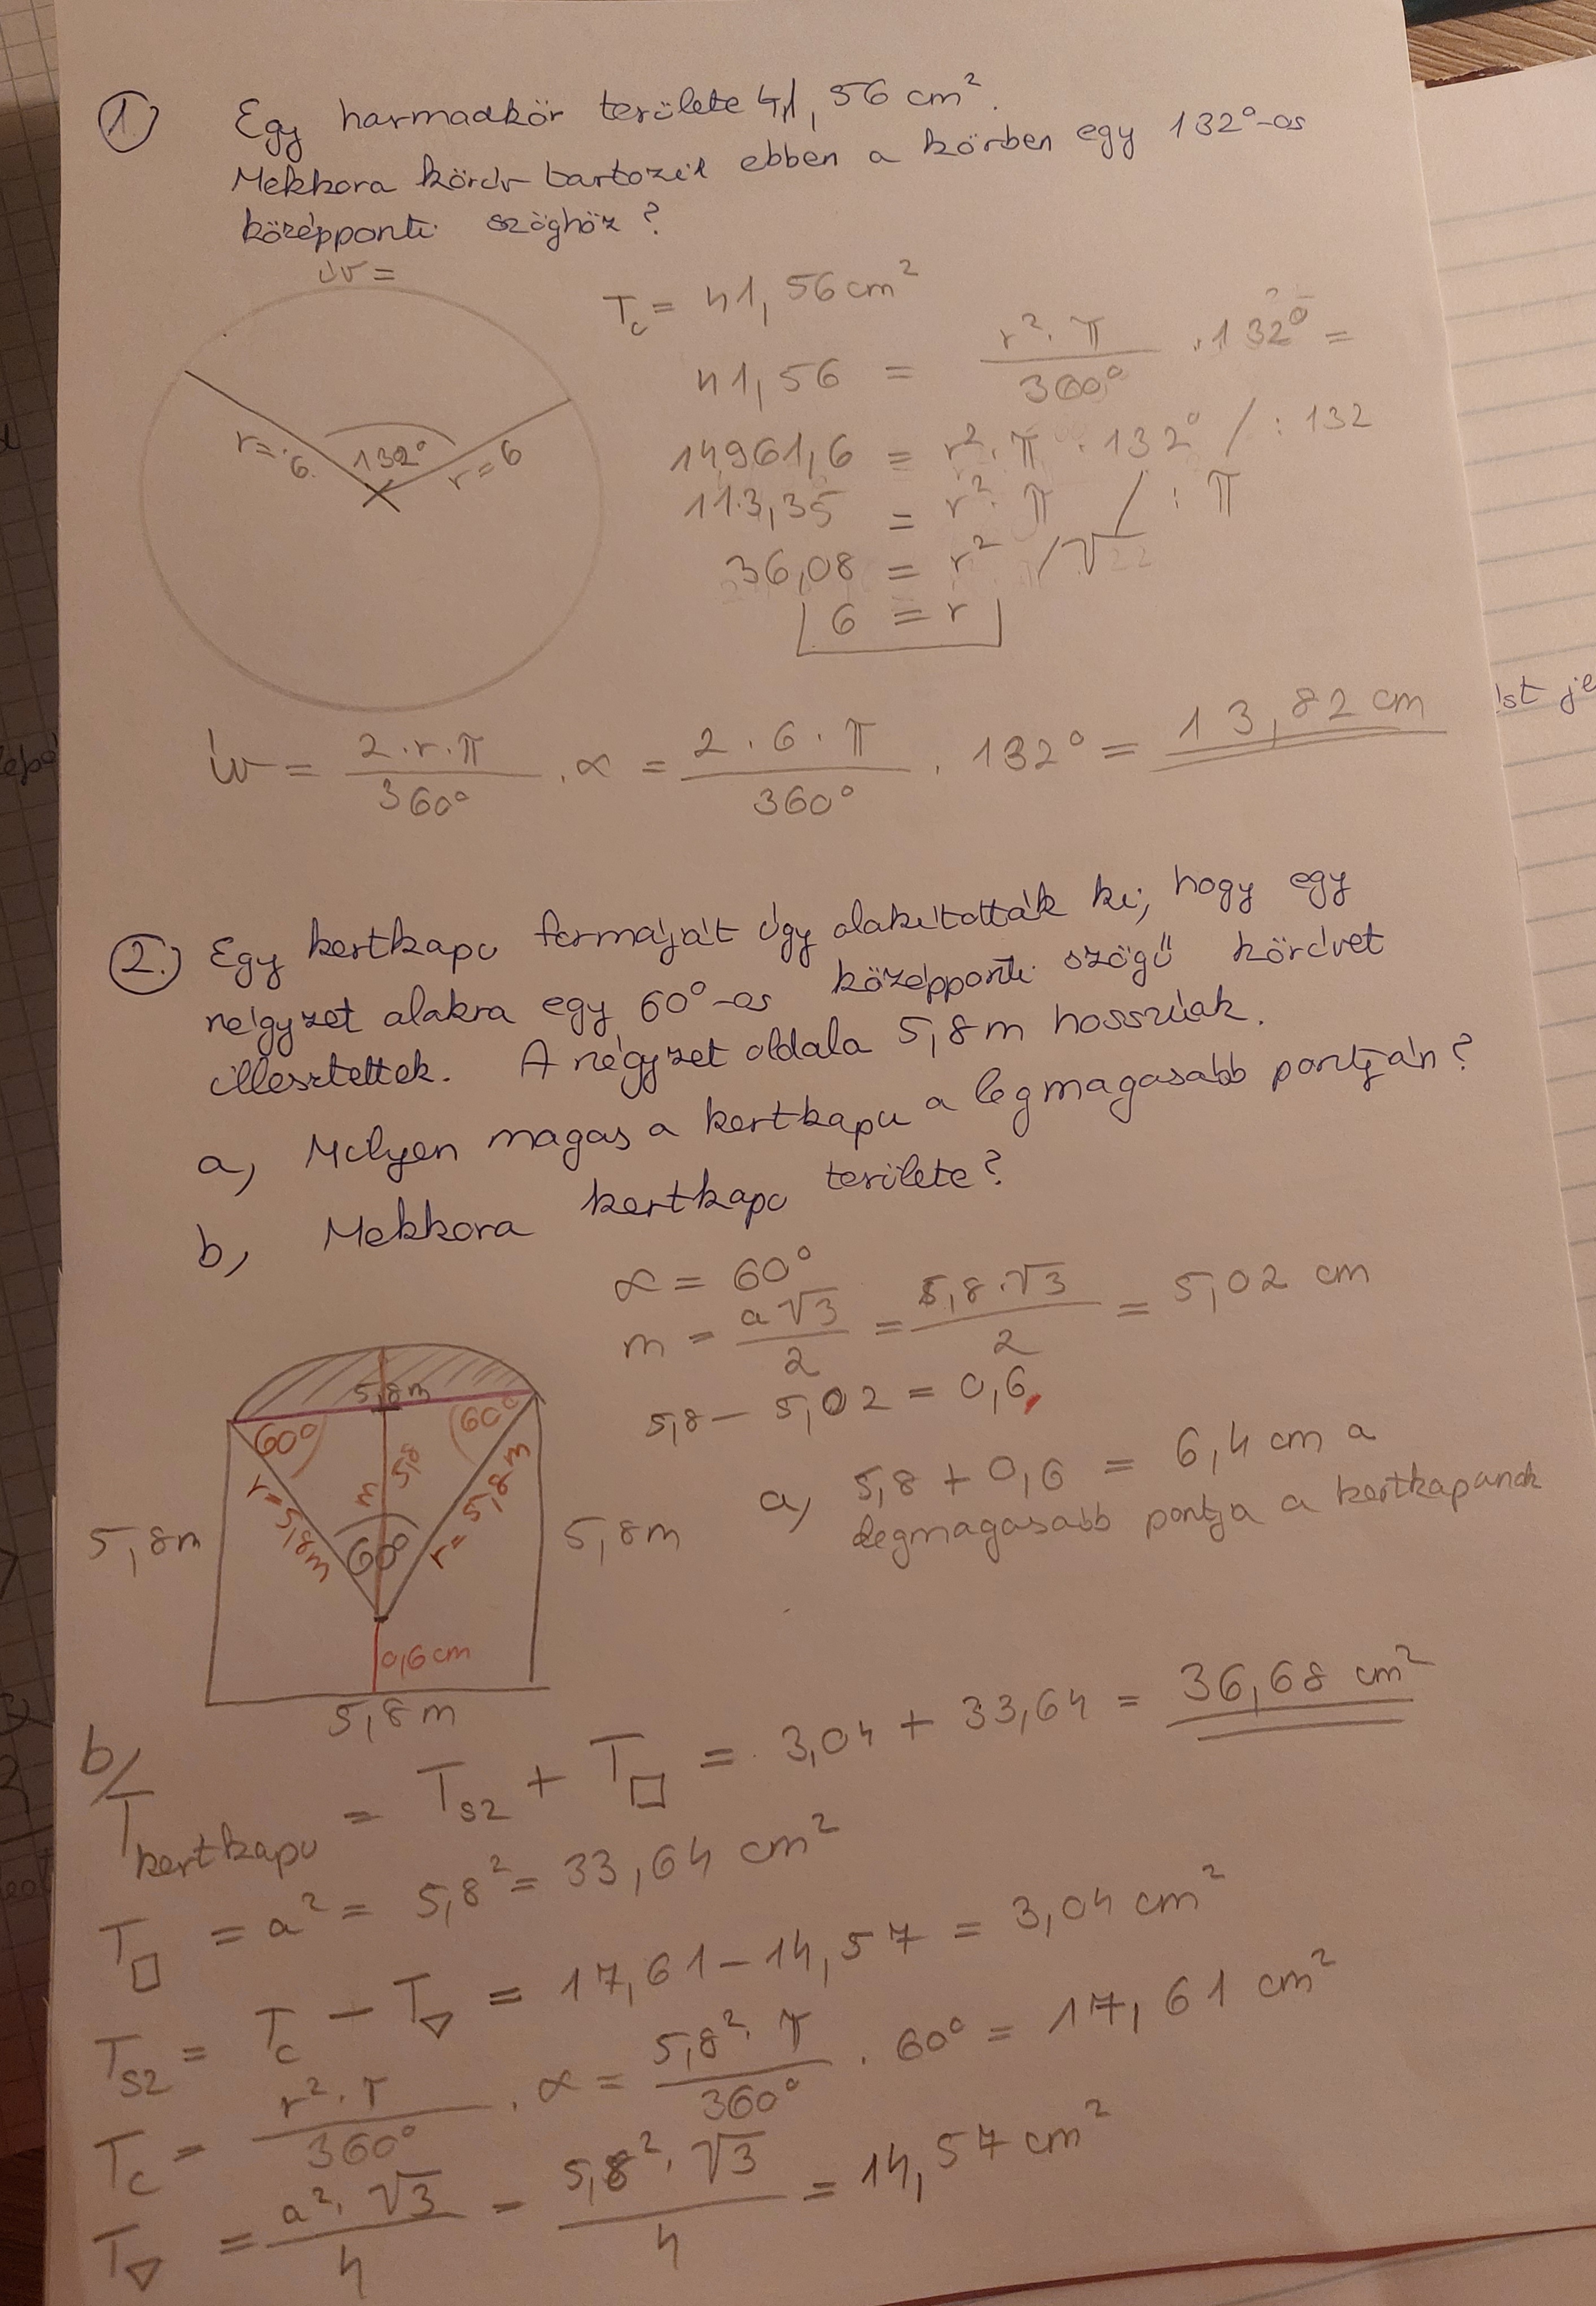 1.) Egy harmadkör területe 41,56 cm².
Mekkora körív tartozik ebben a körben egy 132°-os
középponti szöghöz?
ív =
r = 6
132°
r = 6
Tc = 41,56 cm²
41,56 = r²·π / 360° · 132° =
14961,6 = r²·π · 132° / :132
113,35 = r²·π / :π
36,08 = r² /√
6 = r
ív = 2·r·π / 360° · α = 2·6·π / 360° · 132° = 13,82 cm
2.) Egy kertkapu formáját úgy alakították ki, hogy egy
négyzet alakra egy 60°-os középponti szögű körívet
illesztettek. A négyzet oldala 5,8m hosszúak.
a, Milyen magas a kertkapu a legmagasabb pontján?
b, Mekkora kertkapu területe?
α = 60°
m = a√3 / 2 = 5,8·√3 / 2 = 5,02 cm
5,8 - 5,02 = 0,6
a, 5,8 + 0,6 = 6,4 cm a
legmagasabb pontja a kertkapunak
5,8m
60°
60°
m
5,8
r = 5,8m
r = 5,8m
60°
5,8m
5,8m
0,6 cm
5,8m
b/
T kertkapu = Ts2 + T□ = 3,04 + 33,64 = 36,68 cm²
T□ = a² = 5,8² = 33,64 cm²
Ts2 = Tc - T▽ = 17,61 - 14,57 = 3,04 cm²
Tc = r²·π / 360° · α = 5,8²·π / 360° · 60° = 17,61 cm²
T▽ = a²·√3 / 4 = 5,8²·√3 / 4 = 14,57 cm²